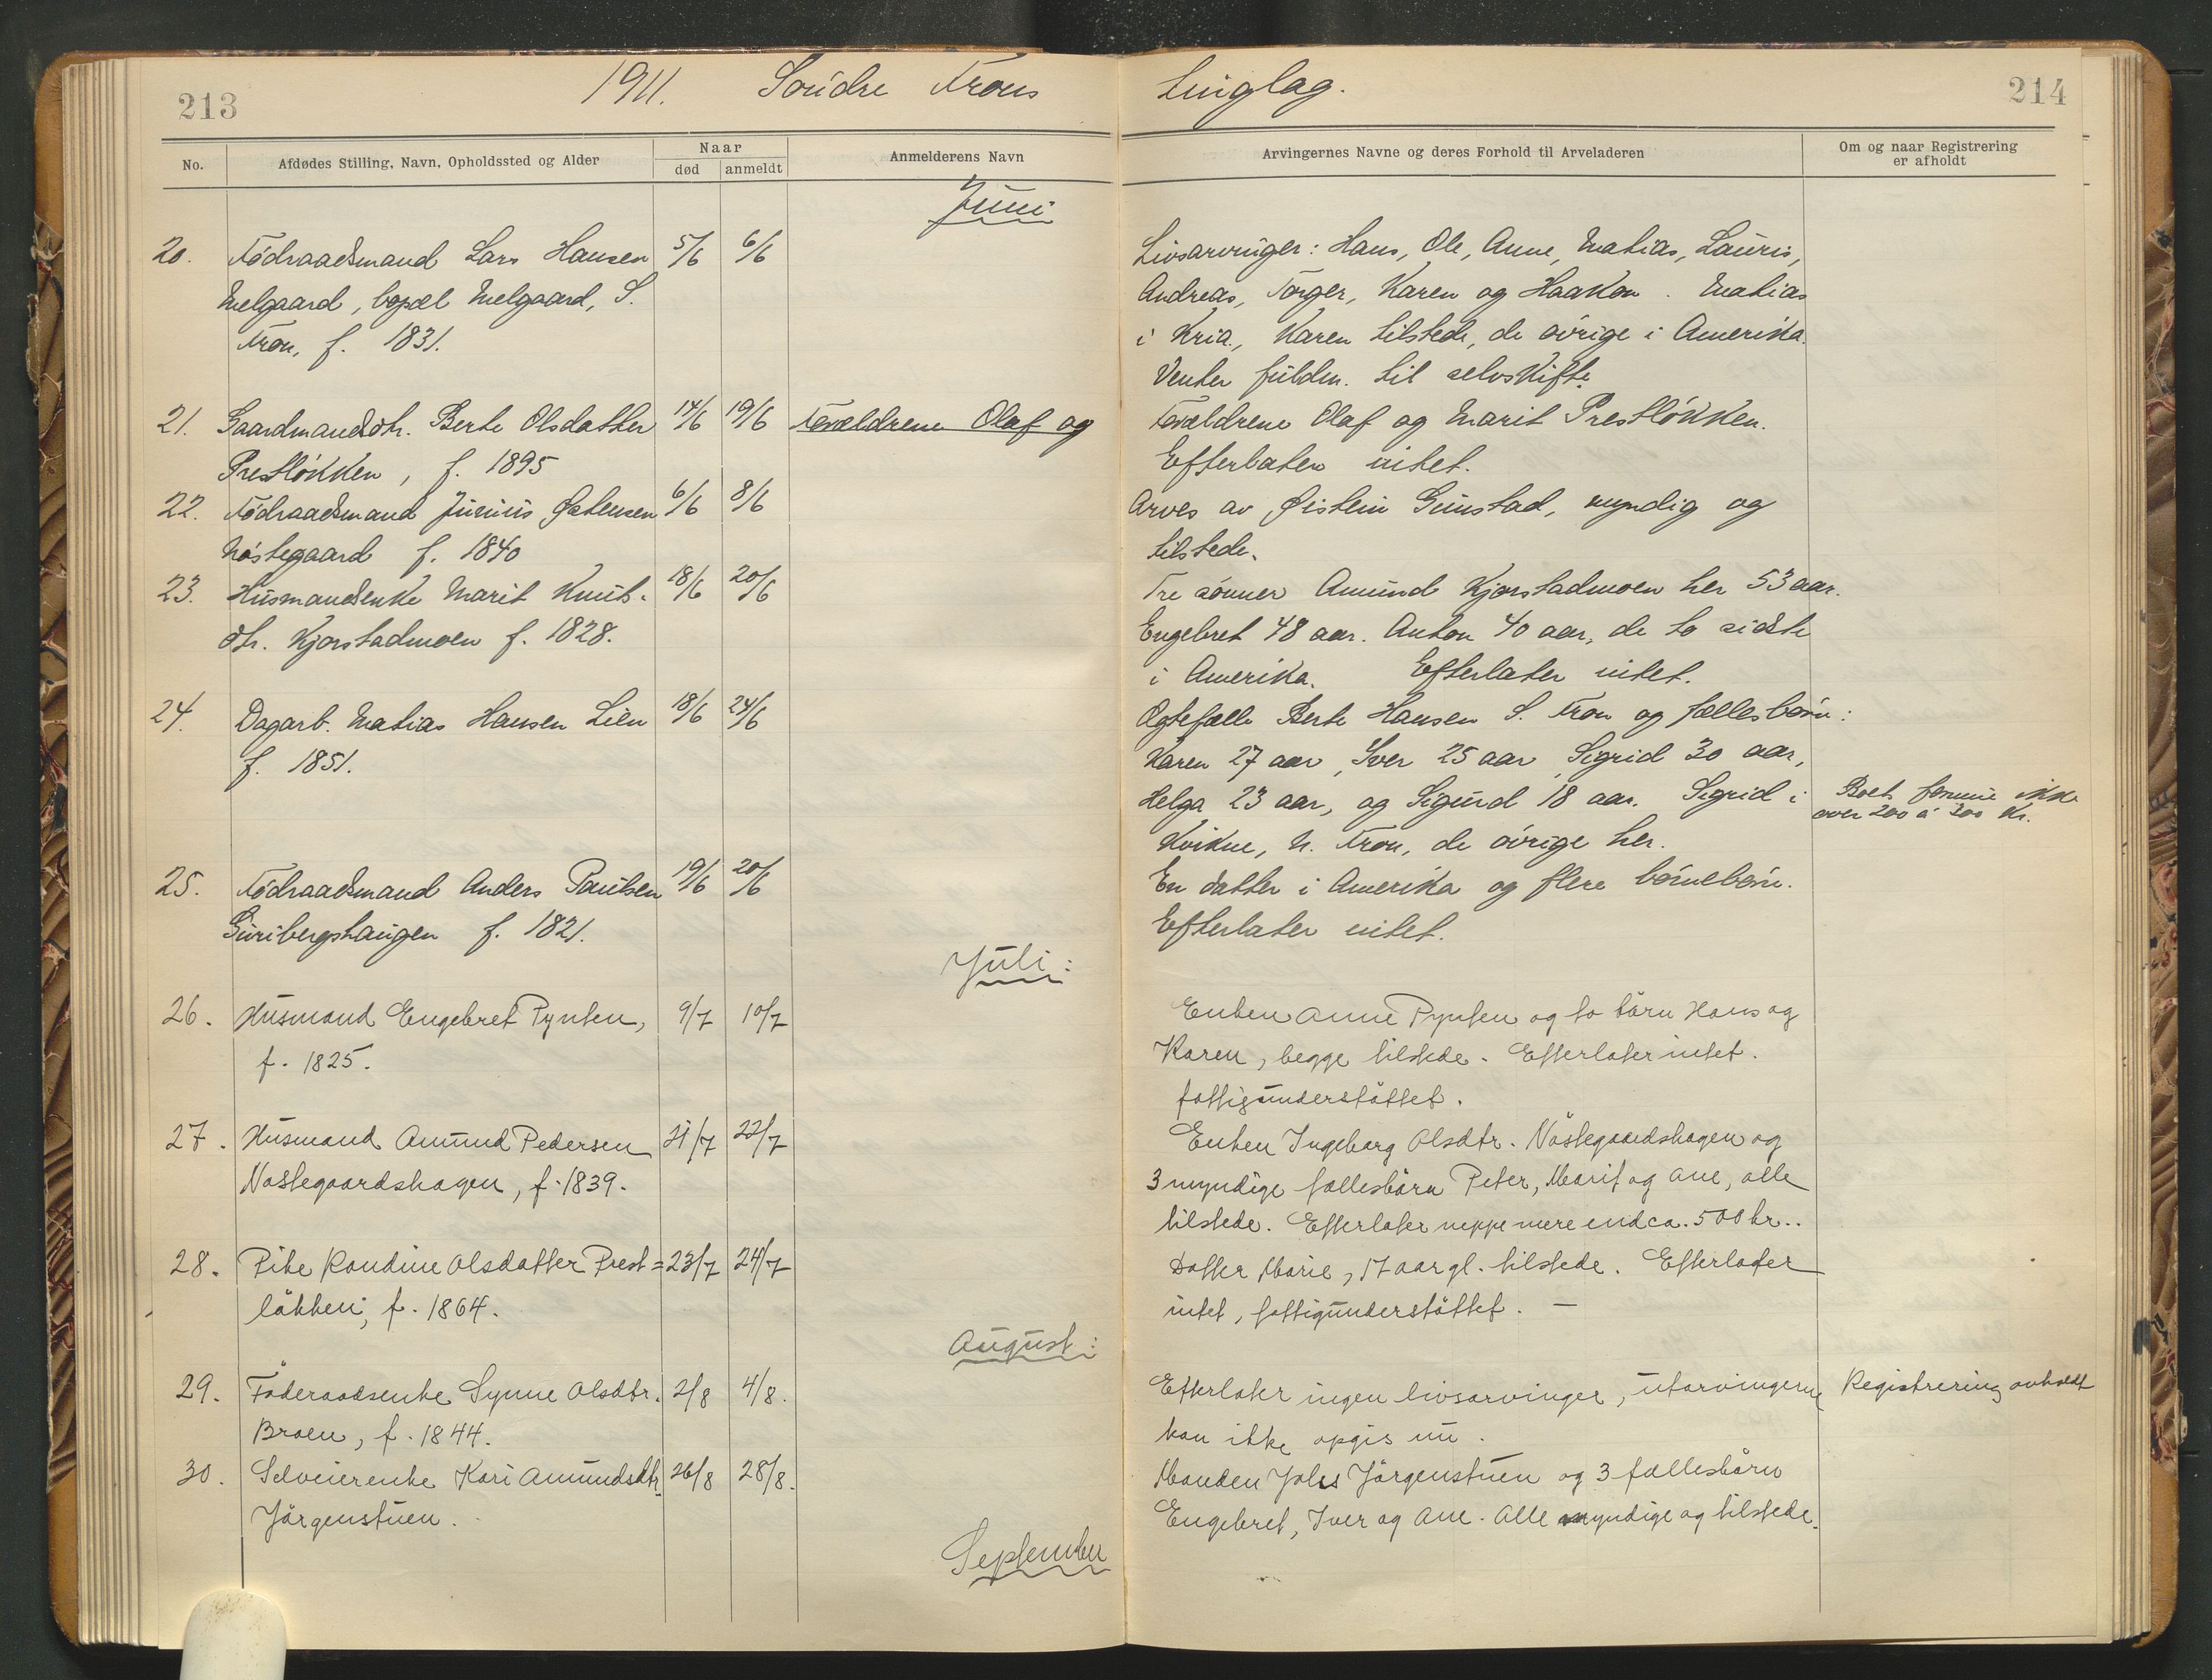 213
1911. Söndre Frons
Tinglag.
214
No.
Afdødes Stilling, Navn, Opholdssted og Alder
Naar
død
anmeldt
Anmelderens Navn
Arvingernes Navne og deres Forhold til Arveladeren
Om og naar Registrering
er afholdt
Juni
20. Födraadsmand Lars Hansen 5/6 6/6
Melgaard, bopæl Melgaard, S.
Fron, f. 1831.
Livsarvinger: Hans, Ole, Anne, Matias, Lauris,
Andreas, Torger, Karen og Haakon. Matias
i Kria., Karen tilstede, de övrige i Amerika.
Venter fuldm. til selvskifte.
21. Gaardmandsdtr. Berte Olsdatter 14/6 19/6 Forældrene Olaf og
Prestløkken, f. 1895
Forældrene Olaf og Marit Prestløkken.
Efterlater intet.
22. Födraadsmand Junius Østensen 6/6 8/6
Nöstegaard f. 1840
Arves av Øistein Grinstad, myndig og
tilstede.
23. Husmandsenke Marit Knuts- 18/6 20/6
dtr. Kjorstadmoen f. 1828.
Tre sönner Amund Kjorstadmoen her 53 aar.
Engebret 48 aar. Anton 40 aar, de to sidste
i Amerika. Efterlater intet.
24. Dagarb. Matias Hansen Lien 18/6 24/6
f. 1851.
Ægtefælle Berte Hansen S. Fron og fællesbörn:
Karen 27 aar, Iver 25 aar, Sigrid 30 aar,
Helga 23 aar, og Sigurd 18 aar. Sigrid i
Kvikne, N. Fron, de övrige her.
Boets formue ikke
over 200 á 300 kr.
25. Födraadsmand Anders Paulsen 19/6 20/6
Guribergshaugen f. 1821.
En datter i Amerika og flere börnebörn.
Efterlater intet.
Juli:
26. Husmand Engebret Pynten, 9/7 10/7
f. 1825.
Enken Anne Pynten og to börn Hans og
Karen, begge tilstede. Efterlater intet.
fattigunderstöttet.
27. Husmand Amund Pedersen 21/7 22/7
Nöstegaardshagen, f. 1839.
Enken Ingeborg Olsdtr. Nöstegaardshagen og
3 myndige fællesbörn Peter, Marit og Ane, alle
tilstede. Efterlater neppe mere end ca. 500 kr..
28. Pike Randine Olsdatter Prest= 23/7 24/7
lökken, f. 1864.
Datter Marie, 17 aar gl. tilstede. Efterlater
intet, fattigunderstöttet. —
August:
29. Föderaadsenke Synne Olsdtr. 2/8 4/8.
Broen, f. 1844.
Efterlater ingen livsarvinger, utarvingerne
kan ikke opgis nu.
Registrering avholdt
30. Selveierenke Kari Amundsdtr. 26/8 28/8.
Jörgenstuen.
Manden Johs Jörgenstuen og 3 fællesbörn
Engebret, Iver og Ane. Alle myndige og tilstede.
September